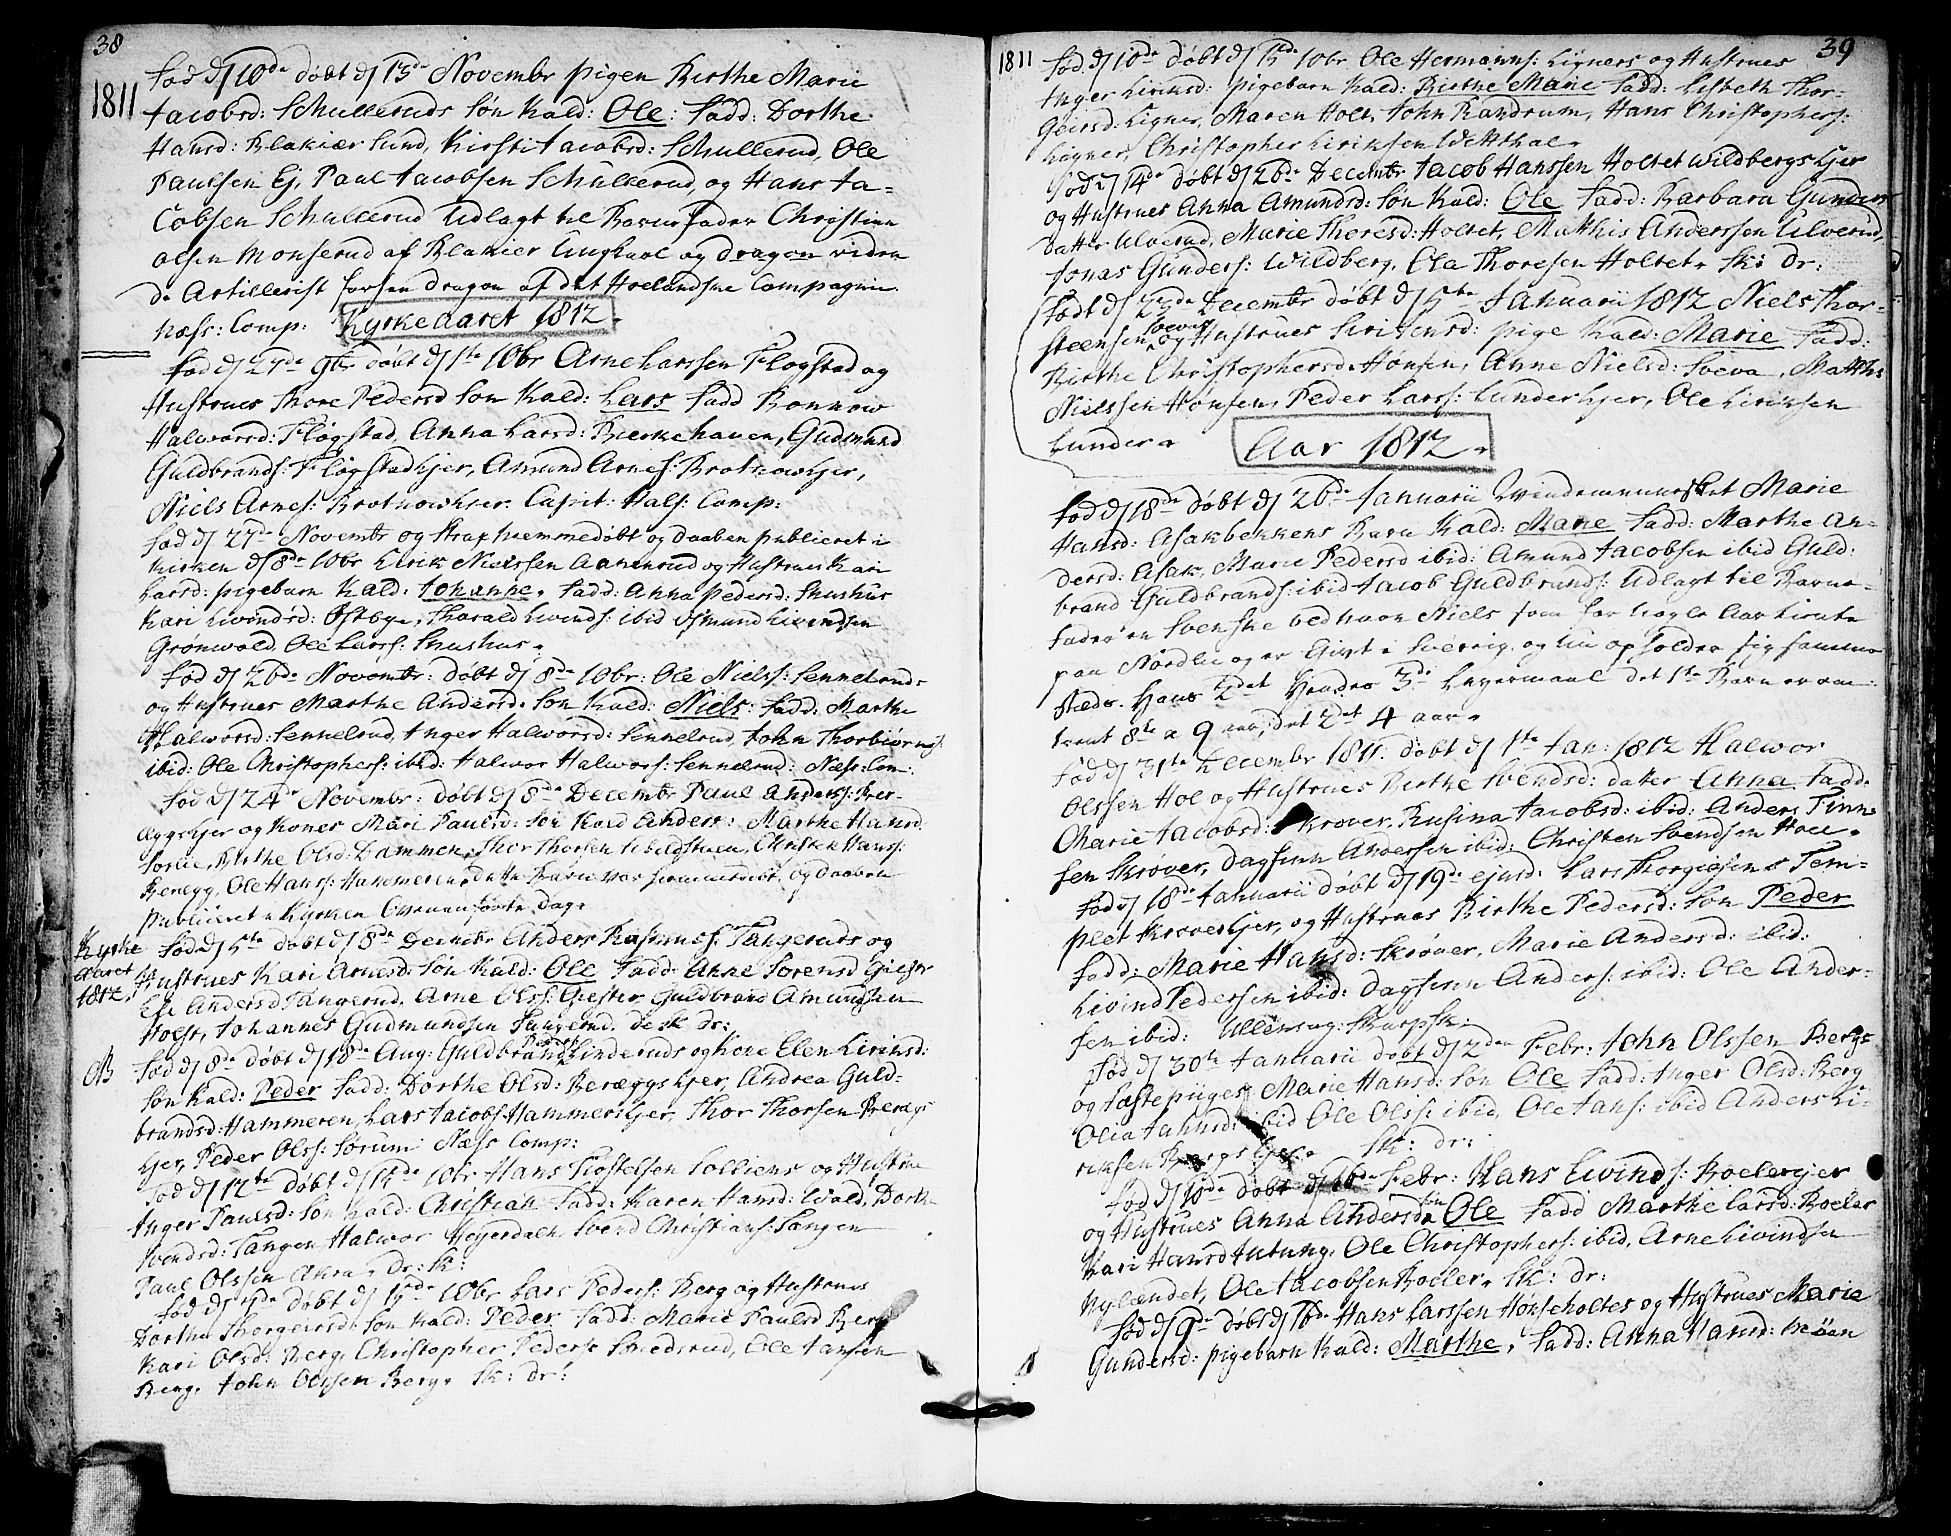 38
1811
Fød d 10de døbt d 13de Novembr pigen Birthe Marie
Jacobsd: Schulleruds Søn Kald: Ole: Fadd: Dorthe
Hansd: Blakiær Sund, Kirsti Jacobsd: Schullerud, Ole
Paulsen Ej, Paul Jacobsen Schullerud, og Hans Ja-
cobsen Schullerud Udlagt til Barnefader Christian
Olsen Monserud af Blakier Ungkarl og dragon
Artillerist dragon af det Høelandske Compagnie
Næss: Comp: Kyrkeaaret 1812.
Fød d 27de 9br døbt d 1ste 10br Arne Larssen Fløgstad og
Hustrues Thore Pedersd Søn Kald: Lars Fadd Ronnow
Halworsd: Fløgstad, Anna Larsd: Bierkehauen, Gudmund
Guldbrands: Fløgstadejer, Amund Arnes: Brotnowejer,
Niels Arnes: Brotnowejer. Halfs: Comp:
Fød d 27de Novembr og hiemmedøbt og daaben publiceret i
Kirken d 8de 10br Eirik Nielssen Aamerud og Hustrues Kari
Larsd: pigebarn Kald: Johanne. Fadd: Anna Pedersd: Skushus
Kari Eivindsd: Østbye, Tharald Eivinds: ibid Osmund Eivindsen
Grønwold, Ole Larss: Skushus.
Fød d 26de Novembr: døbt d 8de 10br: Ole Niels: Sennerud
og Hustrues Marthe Andersd. Søn Kald: Niels: Fadd: Marthe
Halworsd: Sennelrud, Inger Halworsd: Sennelrud, John Thorbiørns:
ibid: Ole Christophers: ibid: Halwor Halwors: Sennelrud: Næss: Com:
Fød d 24de Novembr: døbt d 8de Decembr Paul Anders: Ber-
æggejer og Kones Mari Paulsd: Søn Kald Anders: Marthe Hansd.
Sorlie, Birthe Olsd: Dammen, Thor Thorsen Christen Hans:
Berægg, Ole Hans: Hammeren, dette Barn var hiemmedøbt, og daaben
publiceret i Kyrken dag.
Kyrke
aaret
1812.
Fød d 5te døbt d 8de Decembr Anders Rasmus: Tangeruds og
Hustrues Kari Arnesd: Søn Kald: Ole Fadd: Anne Sorensd Giester
Else Andersd Tangerud, Arne Ols: Giester, Guldbrand Amundsen
Holst, Johannes Gudmundsen Tangerud. de sk dr:
NB
Fød d 8de døbt d 18de Aug: Guldbrand Peders: Linderuds og Kone Elen Eiriksd:
Søn Kald: Peder Fadd: Dorthe Olsd: Beræggsejer, Andrea Guld-
brandsd: Hammeren, Lars Jacobs: Hammersejer, Thor Thorsen Beregs
ejer, Peder Ols: Sørum: Næss Comp:
Fød d 12te døbt d 15de 10br: Hans Kiostelsen Solliens og Hustrue
Inger Paulsd: Søn Kald: Christian Fadd: Karen Hansd: Wold, Dorthe
Svendsd: Tangen Halwor Heyerdahl Svend Christians: Tangen
Paul Olssen Akra. dr: sk:
Fød d døbt d 15de 10br Lars Peders: Berg og Hustrues
Dorthe Thorgeirsd. Søn Kald: Peder Fadd: Marie Paulsd Berg
Kari Olsd: Berg, Christopher Peders: Smedsrud, Ole Jansen
Berg. John Olssen Berg. Sk: dr:
39
1811
Fød d 10de døbt d 15de 10br Ole Hermanns: Ligners og Hustrues
Inger Eiriksd: pigebarn Kald: Birthe Marie Fadd: Lisbeth Thor-
Geirsd: Ligner, Maren Holt, John Randrum, Hans Christophers:
Ligner, Christopher Eiriksen Wetthal.
Fød d 14de døbt d 26de Decembr Jacob Hanssen Holtet Wildbergsejer
og Hustrues Anna Amundsd: Søn Kald: Ole Fadd: Barbara Gunders
Datter Ulverud, Marie Thoresd: Holtet, Mathis Anderssen Ulverud,
Jonas Gunders: Wildberg, Ola Thoresen Holtet. Sk: dr:
Født d 23de Decembr døbt d 5te Januarii 1812 Niels Thor-
steensen Soeva og Hustrues Eiriksd: pige Kald: Marie Fadd:
Birthe Christophersd: Honsen, Anne Nielsd: Soeva, Matth:
Nielssen Honsen, Peder Lars: Lunderejer, Ole Eiriksen
Lunder. Aar 1812.
Fød d 18de døbt d 26de Januarii Qvindemennesket Marie
Hansd: Asakbekkens Barn Kald: Marie Fadd: Marthe An-
dersd: Asak, Marie Pedersd ibid: Amund Jacobsen ibid Guld:
brand Guldbrands: ibid Jacob Guldbrands: Udlagt til Barne-
fader en Svenske ved navn Niels som for nogle Aar tiente
paa Nordlie og er Givt i Sverrig, og nu opholder sig samme
steder. Hans 2det Hendes 3de Leyermaal det 1ste Barn er om-
trent 8te a 9 aar, det 2det 4 aar.
Fød d 31te December 1811. døbt d 1te Jan: 1812 Halwor
Olssen Hol og Hustrues Birthe Svendsd: datter Anna Fadd.
Marie Jacobsd: Skrøver, Rusina Jacobsd: ibid: Anders Finn-
sen Skrøver, Dagfinn Andersen ibid: Christen Svendsen Holl.
Fød d 18de Januarii døbt d 19de ejusd: Lars Thorgiøsens Tem-
plet Skroverejer, og Hustrues Birthe Pedersd: Søn Peder
Fadd: Marie Hansd: Skrøver, Marie Andersd: ibid:
Eivind Pedersen ibid: Dagfinn Anders: ibid: Ole Ander-
sen ibid: Ullensag: Skarpsk:
Fød d 30te Januarii døbt d 2den Febr: John Olssen Bergs
og Fæstepiiges Marie Hansd: Søn Ole Fadd: Inger Olsd: Berg
Olia Jahnsd: ibid Ole Ols: ibid, Ole Jans: ibid Anders Ei-
riksen Bergsejer. Sk: dr:
Fød d 10de døbt d 16de Febr: Hans Eivinds: Roelerejer
og Hustrues Anna Andersd: Søn Ole Fadd Marthe Larsd: Roeler
Kari Hansd Jutung, Ole Christophers: ibid, Arne Eivindsen
Nylændet, Ole Jacobsen Roeler. Sk: dr:
Fød d 9de døbt d 16de Hans Larssen Hønseholtes og Hustrues Marie
Gundersd: pigebarn Kald: Marthe, Fadd: Anna Hansd: Meøen